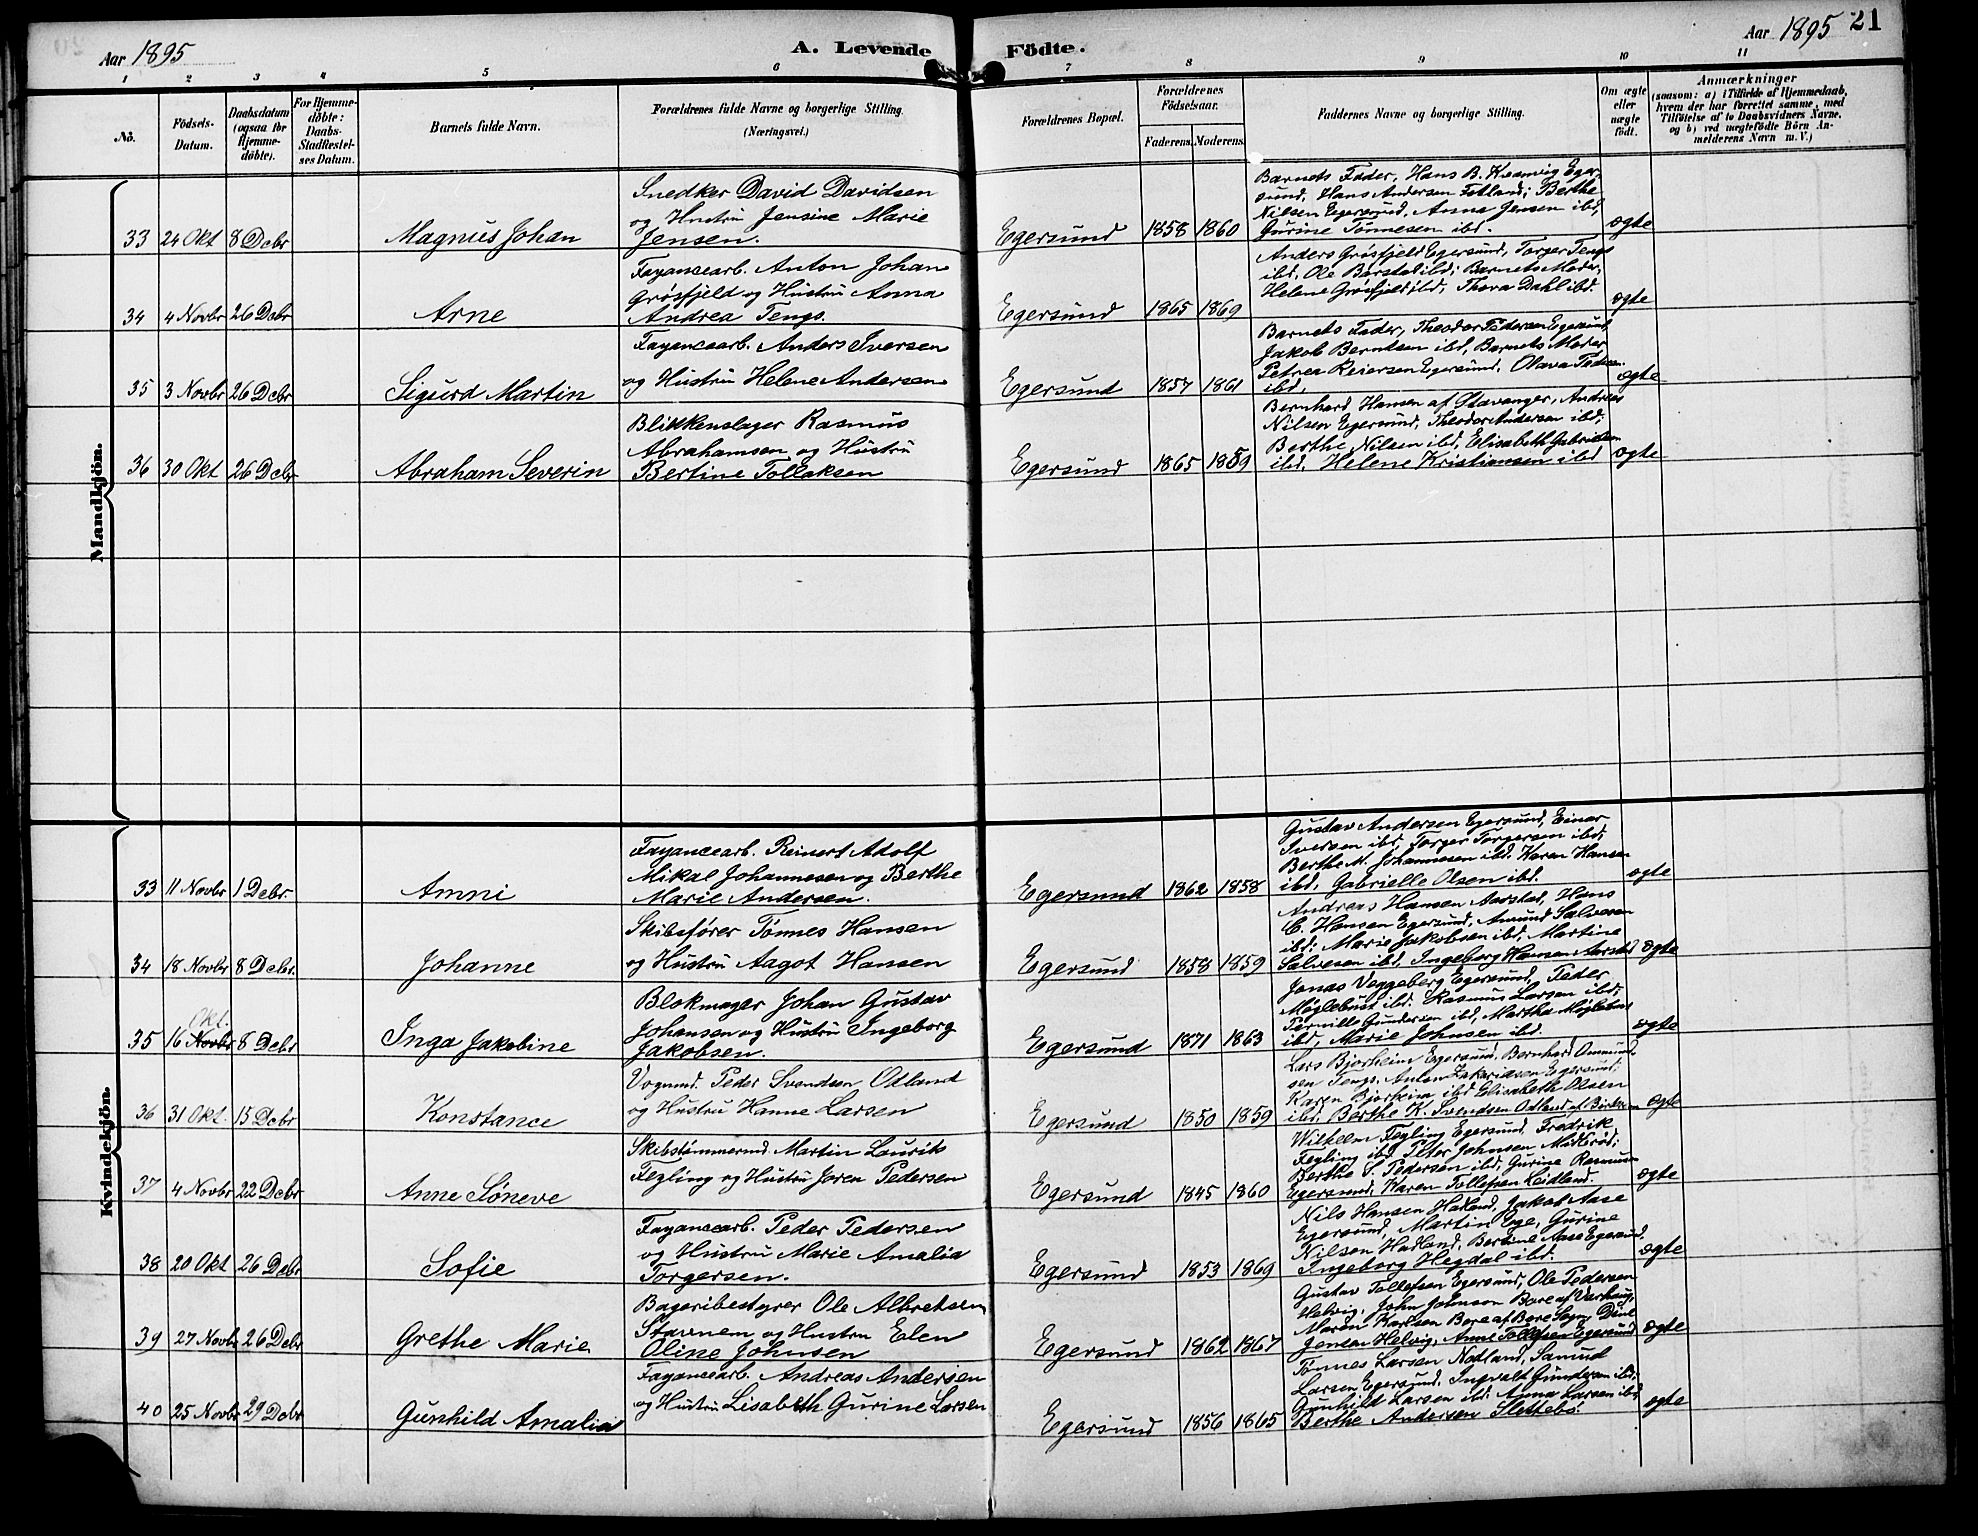 Aar 1895
A. Levende Födte.
Aar 1895 21
1 2 3 4 5 6 7 8 9 10 11
No.
Födsels-Datum.
Daabsdatum (ogsaa for Hjemme-döbte).
For Hjemme-döbte: Daabs-Stadfæstel-ses Datum.
Barnets fulde Navn.
Forældrenes fulde Navne og borgerlige Stilling. (Næringsvei.)
Forældrenes Bopæl.
Forældrenes Födselsaar.
Faderens. Moderens.
Faddernes Navne og borgerlige Stilling.
Om ægte eller uægte födt.
Anmærkninger
(saasom: a) i Tilfælde af Hjemmedaab, hvem der har forrettet samme, med Tilföielse af to Daabsvidners Navne, og b) ved uægtefödte Börn An-melderens Navn m. V.)
Mandkjön.
33 24 Okt 8 Debr Magnus Johan
Snedker David Davidsen
og Hustru Jensine Marie
Jensen.
Egersund 1858 1860
Barnets Fader, Hans B. Eger-
sund, Hans Andersen Fotland; Berthe
Nilsen Egersund, Anna Jensen ibd,
Gurine Tönnesen ibd.
ægte
34 4 Novbr 26 Debr Arne
Fayancearb. Anton Johan
Grösfjeld og Hustru Anna
Andrea Tengs.
Egersund 1865 1869
Anders Grösfjeld Egersund, Torger Tengs
ibd, Ole Barstad ibd; Barnets Moder,
Helene Grösfjeld ibd, Thora Dahl ibd.
ægte
35 3 Novbr 26 Debr Sigurd Martin
Fayancearb. Anders Iversen
og Hustru Helene Andersen
Egersund 1857 1861
Barnets Fader, Theodor Pedersen Egersund,
Jakob Berntsen ibd, Barnets Moder
Petrea Reiersen Egersund, Olava Pedersen
ibd.
ægte
36 30 Okt 26 Debr Abraham Severin
Blikkenslager Rasmus
Abrahamsen og Hustru
Bertine Tollaksen
Egersund 1865 1859
Bernhard Hansen af Stavanger, Andreas
Nilsen Egersund, Theodor Andersen ibd;
Berthe Nilsen ibd, Elisabeth Gabrielsen
ibd, Helene Kristiansen ibd
ægte
Kvindekjön.
33 11 Novbr 1 Debr. Amni
Fayancearb. Reinert Adolf
Mikal Johannesen og Berthe
Marie Andersen.
Egersund 1862 1858
Gustav Andersen Egersund, Einar
Iversen ibd, Torger Torgersen ibd,
Berthe M. Johannesen ibd. Karen Hansen
ibd, Gabrielle Olsen ibd.
ægte
34 18 Novbr 8 Debr. Johanne
Skibsförer Tönnes Hansen
og Hustru Aagot Hansen
Egersund 1858 1859
Andreas Hansen Aarstad, Hans
C. Hansen Egersund, Amund Salvesen
ibd; Marie Jakobsen ibd, Martine
Salvesen ibd, Ingeborg Hansen Aarstad
ægte
35 16 Novbr Okt. 8 Debr Inga Jakobine
Blokmager Johan Gustav
Johansen og Hustru Ingeborg
Jakobsen.
Egersund 1871 1863
Jonas Veggeberg Egersund, Peder
Möglebust ibd. Rasmus Larsen ibd,
Pernille Gundersen ibd, Martha Möglebust
ibd, Marie Johnsen ibd.
ægte
36 31 Okt. 15 Debr Konstance
Vognmd. Peder Svendsen Odland
og Hustru Hanne Larsen
Egersund 1850 1859
Lars Bjorheim Egersund, Bernhard Ommund-
sen Tengs, Anton Zakariasen Egersund;
Karen Bjorheim ibd Elisabeth Olsen
ibd, Berthe K. Svendsen Odland af
ægte
37 4 Novbr 22 Debr Anne Söneve
Skibstömmermd. Martin Laurits
Fegling og Hustru Joren Pedersen
Egersund 1845 1860
Wilhelm Fegling Egersund, Fredrik
Fegling ibd, Peter Johnsen Midbröd;
Berthe S. Pedersen ibd, Gurine Rasmussen
Egersund, Karen Tollefsen Leidland.
ægte
38 20 Okt 26 Debr Sofie
Fayancearb. Peder Pedersen
og Hustru Marie Amalia
Torgersen.
Egersund 1853 1869
Nils Hansen Hadland, Jakob Aase
Egersund, Martin Ege, Gurine
Nilsen Hadland, Bertine Aase Egersund,
Ingeborg Hegdal ibd.
ægte
39 27 Novbr 26 Debr Grethe Marie
Bageribestyrer Ole Albretsen
Stavnem og Hustru Elen
Oline Johnsen
Egersund 1862 1867
Gustav Tollefsen Egersund, Ole Pedersen
Helvig, John Johnson Bore af Varhaug,
Maren Karlsen Bore af Bore Sogn,
Jensen Helvig, Anne Tollefsen Egersund
ægte
40 25 Novbr 29 Debr Gunhild Amalia
Fayancearb. Andreas Andersen
og Hustru Lisabeth Gurine Larsen
Egersund 1856 1865
Tönnes Larsen Nodland, Samuel
Larsen Egersund, Ingvalt Gundersen ibd;
Gunhild Larsen ibd. Anna Larsen ibd,
Berthe Andersen Slettebö
ægte